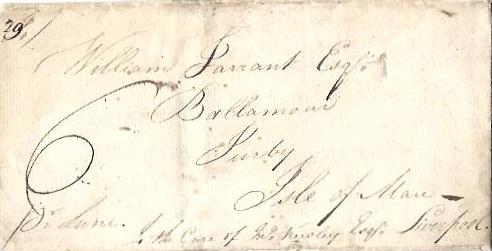 29/
William Farrant Esqr.
Ballamoar
Jurby
Isle of Man
6
Pr. Lune.
To the Care of Mr. Kewley Esqr. Liverpool.